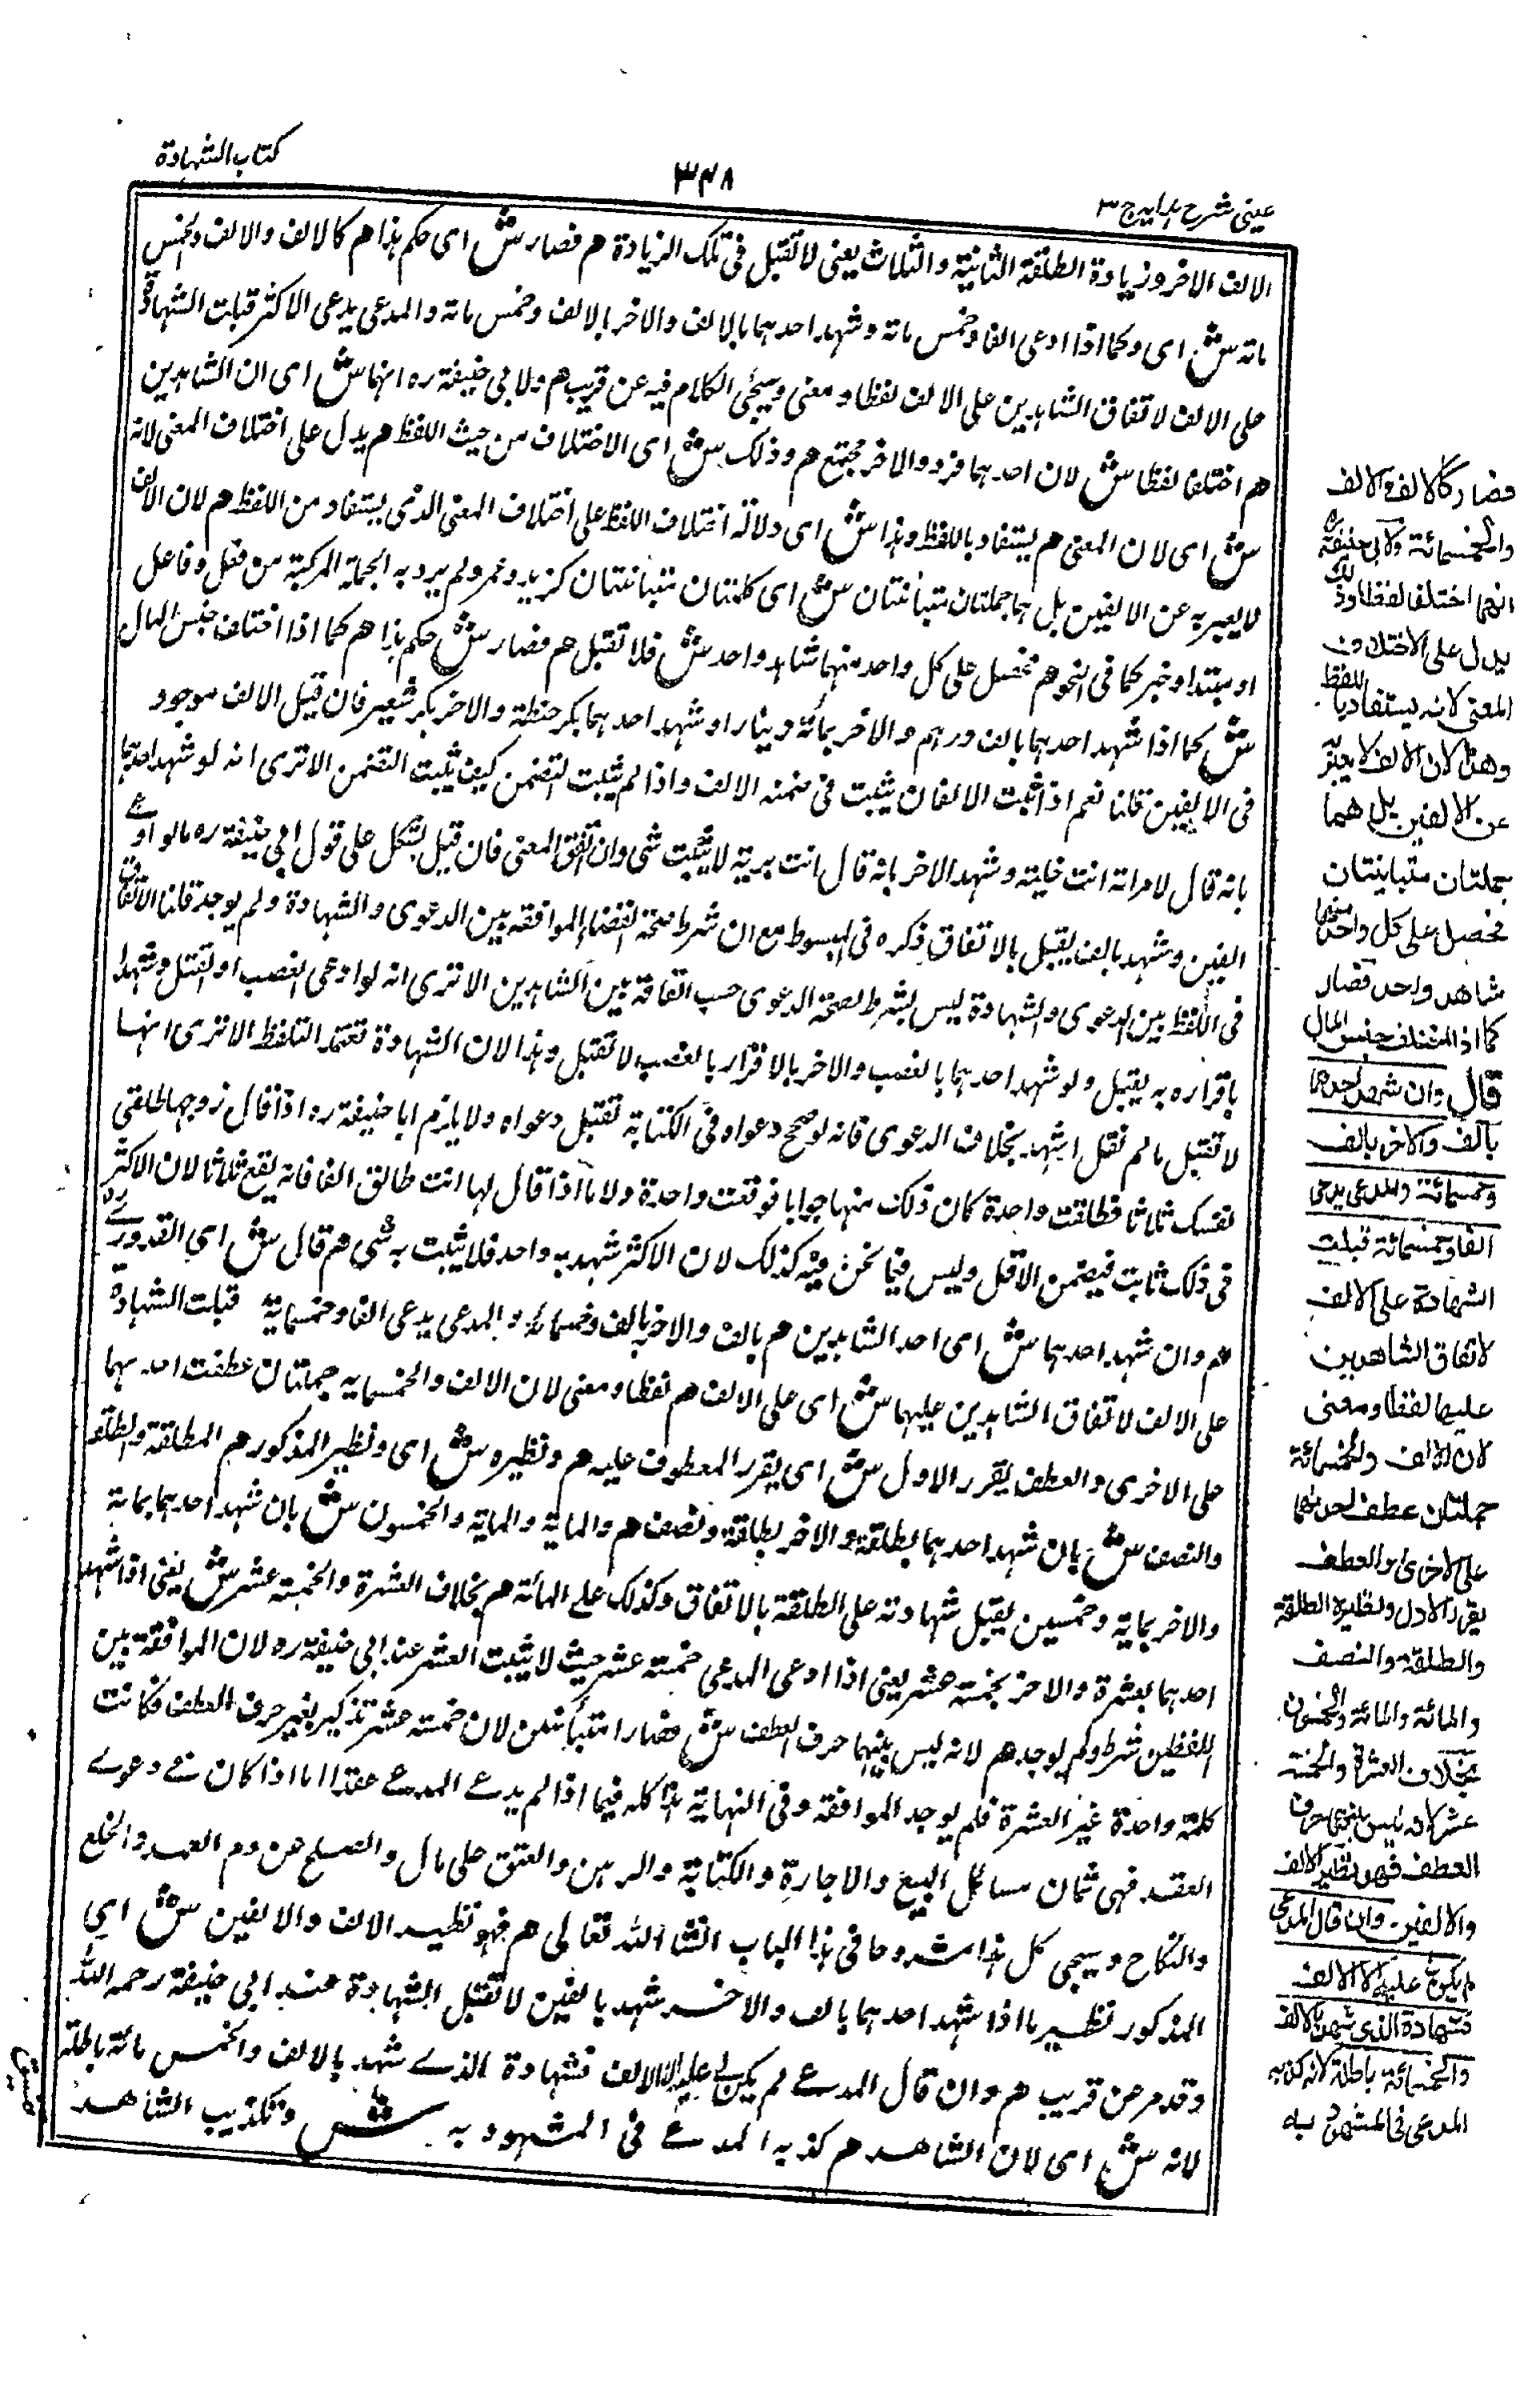 عینی شرح ہدایہ ج ۳
۳۴۸
کتاب الشہادة
الالف الاخر وزیادة الطلقة الثانیة والثلاث یعنی لا تقبل فی تلک الزیادة ھم فصار ش ای حکم ہذا ھم کالالف والالف والخمس
مائة ش ای وکما اذا ادعی الفا وخمس مائة وشہد احدہما بالالف والاخر بالالف وخمس مائة والمدعی یدعی الاکثر قبلت الشہادة
علی الالف لاتفاق الشاہدین علی الالف لفظا ومعنی وسیجئ الکلام فیہ عن قریب ھم ولابی حنیفة رہ انہما ش ای ان الشاہدین
ھم اختلفا لفظا ش لان احدہما فرد والاخر مجتمع ھم وذلک ش ای الاختلاف من حیث اللفظ ھم یدل علی اختلاف المعنی لانہ
ش ای لان المعنی ھم یستفاد باللفظ وہذا ش ای دلالة اختلاف اللفظ علی اختلاف المعنی الذی یستفاد من اللفظ ھم لان الالف
لا یعبر بہ عن الالفین بل ہما جملتان متباینتان ش ای کلمتان متباینتان کزید وعمرو لم یرد بہ الجملة المرکبة من فعل وفاعل
او مبتدا وخبر کما فی النحو ھم فحصل علی کل واحد منہما شاہد واحد ش فلا تقبل ھم فصار ش حکم ہذا ھم کما اذا اختلف جنس المال
ش کما اذا شہد احدہما بالف درہم والاخر بمائة دینار او شہد احدہما بکر حنطة والاخر بکر شعیر فان قیل الالف موجود
فی الالفین قلنا نعم اذا ثبت الالفان یثبت فی ضمنہ الالف واذا لم یثبت المتضمن کیف یثبت التضمن الا تری انہ لو شہد احدہما
بانہ قال لامراتہ انت خلیة وشہد الاخر بانہ قال انت بریة لا یثبت شئ وان اتفق المعنی فان قیل یشکل علی قول ابی حنیفة رہ ما لو ادعی
الفین وشہد بالف یقبل بالاتفاق ذکرہ فی المبسوط مع ان شرط صحة القضاء الموافقة بین الدعوی والشہادة ولم یوجد قلنا الاتفاق
فی اللفظ بین الدعوی والشہادة لیس بشرط لصحة الدعوی حسب اتفاقہ بین الشاہدین الا تری انہ لو ادعی الغصب او القتل وشہدا
باقرارہ بہ یقبل ولو شہد احدہما بالغصب والاخر بالاقرار بالغصب لا تقبل وہذا لان الشہادة تعتمد التلفظ الا تری انہا
لا تقبل ما لم نقل اشہد بخلاف الدعوی فانہ لو صح دعواہ فی الکتابة تقبل دعواہ ولا یلزم ابا حنیفة رہ اذا قال زوجہا طلقی
نفسک ثلاثا فطلقت واحدة کان ذلک منہا جوابا فوقعت واحدة ولا ما اذا قال لہا انت طالق الفا فانہ یقع ثلاثا لان الاکثر
فی ذلک ثابت فیضمن الاقل ولیس فیما نحن فیہ کذلک لان الاکثر شہد بہ واحد فلا یثبت بہ شئ ھم قال ش ای القدوری رہ
ھم وان شہد احدہما ش ای احد الشاہدین ھم بالف والاخر بالف وخمسمائة والمدعی یدعی الفا وخمسمایة قبلت الشہادة
علی الالف لاتفاق الشاہدین علیہا ش ای علی الالف ھم لفظا ومعنی لان الالف والخمسمایہ جملتان عطفت احدہما
علی الاخری والعطف یقرر الاول ش ای یقرر المعطوف علیہ ھم ونظیرہ ش ای ونظیر المذکور ھم الطلقة والطلقة
والنصف ش بان شہد احدہما بطلقة والاخر بطلقة ونصف ھم والمایة والمایة والخمسون ش بان شہد احدہما بمایة
والاخر بمایة وخمسین یقبل شہادتہ علی الطلقة بالاتفاق وکذلک علی المائة ھم بخلاف العشرة والخمسة عشر ش یعنی اذا شہد
احدہما بعشرة والاخر بخمسة عشر یعنی اذا ادعی المدعی خمسة عشر حیث لا یثبت العشر عند ابی حنیفة رہ لان الموافقة بین
اللفظین شرط ولم یوجد ھم لانہ لیس بینہما حرف العطف ش فصارا متباینین لان خمسة عشر تذکیر بغیر حرف العطف فکانت
کلمة واحدة غیر العشرة فلم یوجد الموافقة وفی النہایة ہذا کلہ فیما اذا لم یدع المدعی عقدا اما اذا کان فی دعوے
العقد فہی ثمان مسائل البیع والاجارة والکتابة والرہن والعتق علی مال والصلح عن دم العمد والخلع
والنکاح وسیجی کل ہذا مشروحا فی ہذا الباب انشا اللہ تعالی ھم فہو نظیر الالف والالفین ش ای
المذکور نظیر ما اذا شہد احدہما بالف والاخر شہد بالفین لا تقبل الشہادة عند ابی حنیفة رحمہ اللہ
وقد مر عن قریب ھم وان قال المدعی لم یکن لی علیہ الا الالف فشہادة الذے شہد بالالف والخمس مائة باطلة
لانہ ش ای لان الشاہد ھم کذبہ المدعے فی المشہود بہ ش وتکذیب الشاہد
فصار کالالف والالف
والخمسمائة ولابی حنیفة رہ
انهما اختلفا لفظا وذلک
یدل علی الاختلاف
المعنی لانه یستفاد باللفظ
وهذا لان الالف لا یعبر به
عن الالفین بل هما
جملتان متباینتان
فحصل علی کل واحد منهما
شاهد واحد فصار
کما اذا اختلف جنس المال
قال وان شهد احدهما
بالف والاخر بالف
وخمسمائة والمدعی یدعی
الفا وخمسمائة قبلت
الشهادة علی الالف
لاتفاق الشاهدین
علیها لفظا ومعنی
لان الالف والخمسمائة
جملتان عطف احدٰهما
علی الاخری والعطف
یقرر الاول ونظیره الطلقة
والطلقة والنصف
والمائة والمائة والخمسون
بخلاف العشرة والخمسة
عشر لانه لیس بینهما حرف
العطف فهو نظیر الالف
والالفین وان قال المدعی
لم یکن لی علیه الا الالف
فشهادة الذی شهد بالالف
والخمسمائة باطلة لانه کذبه
المدعی فی المشهود به